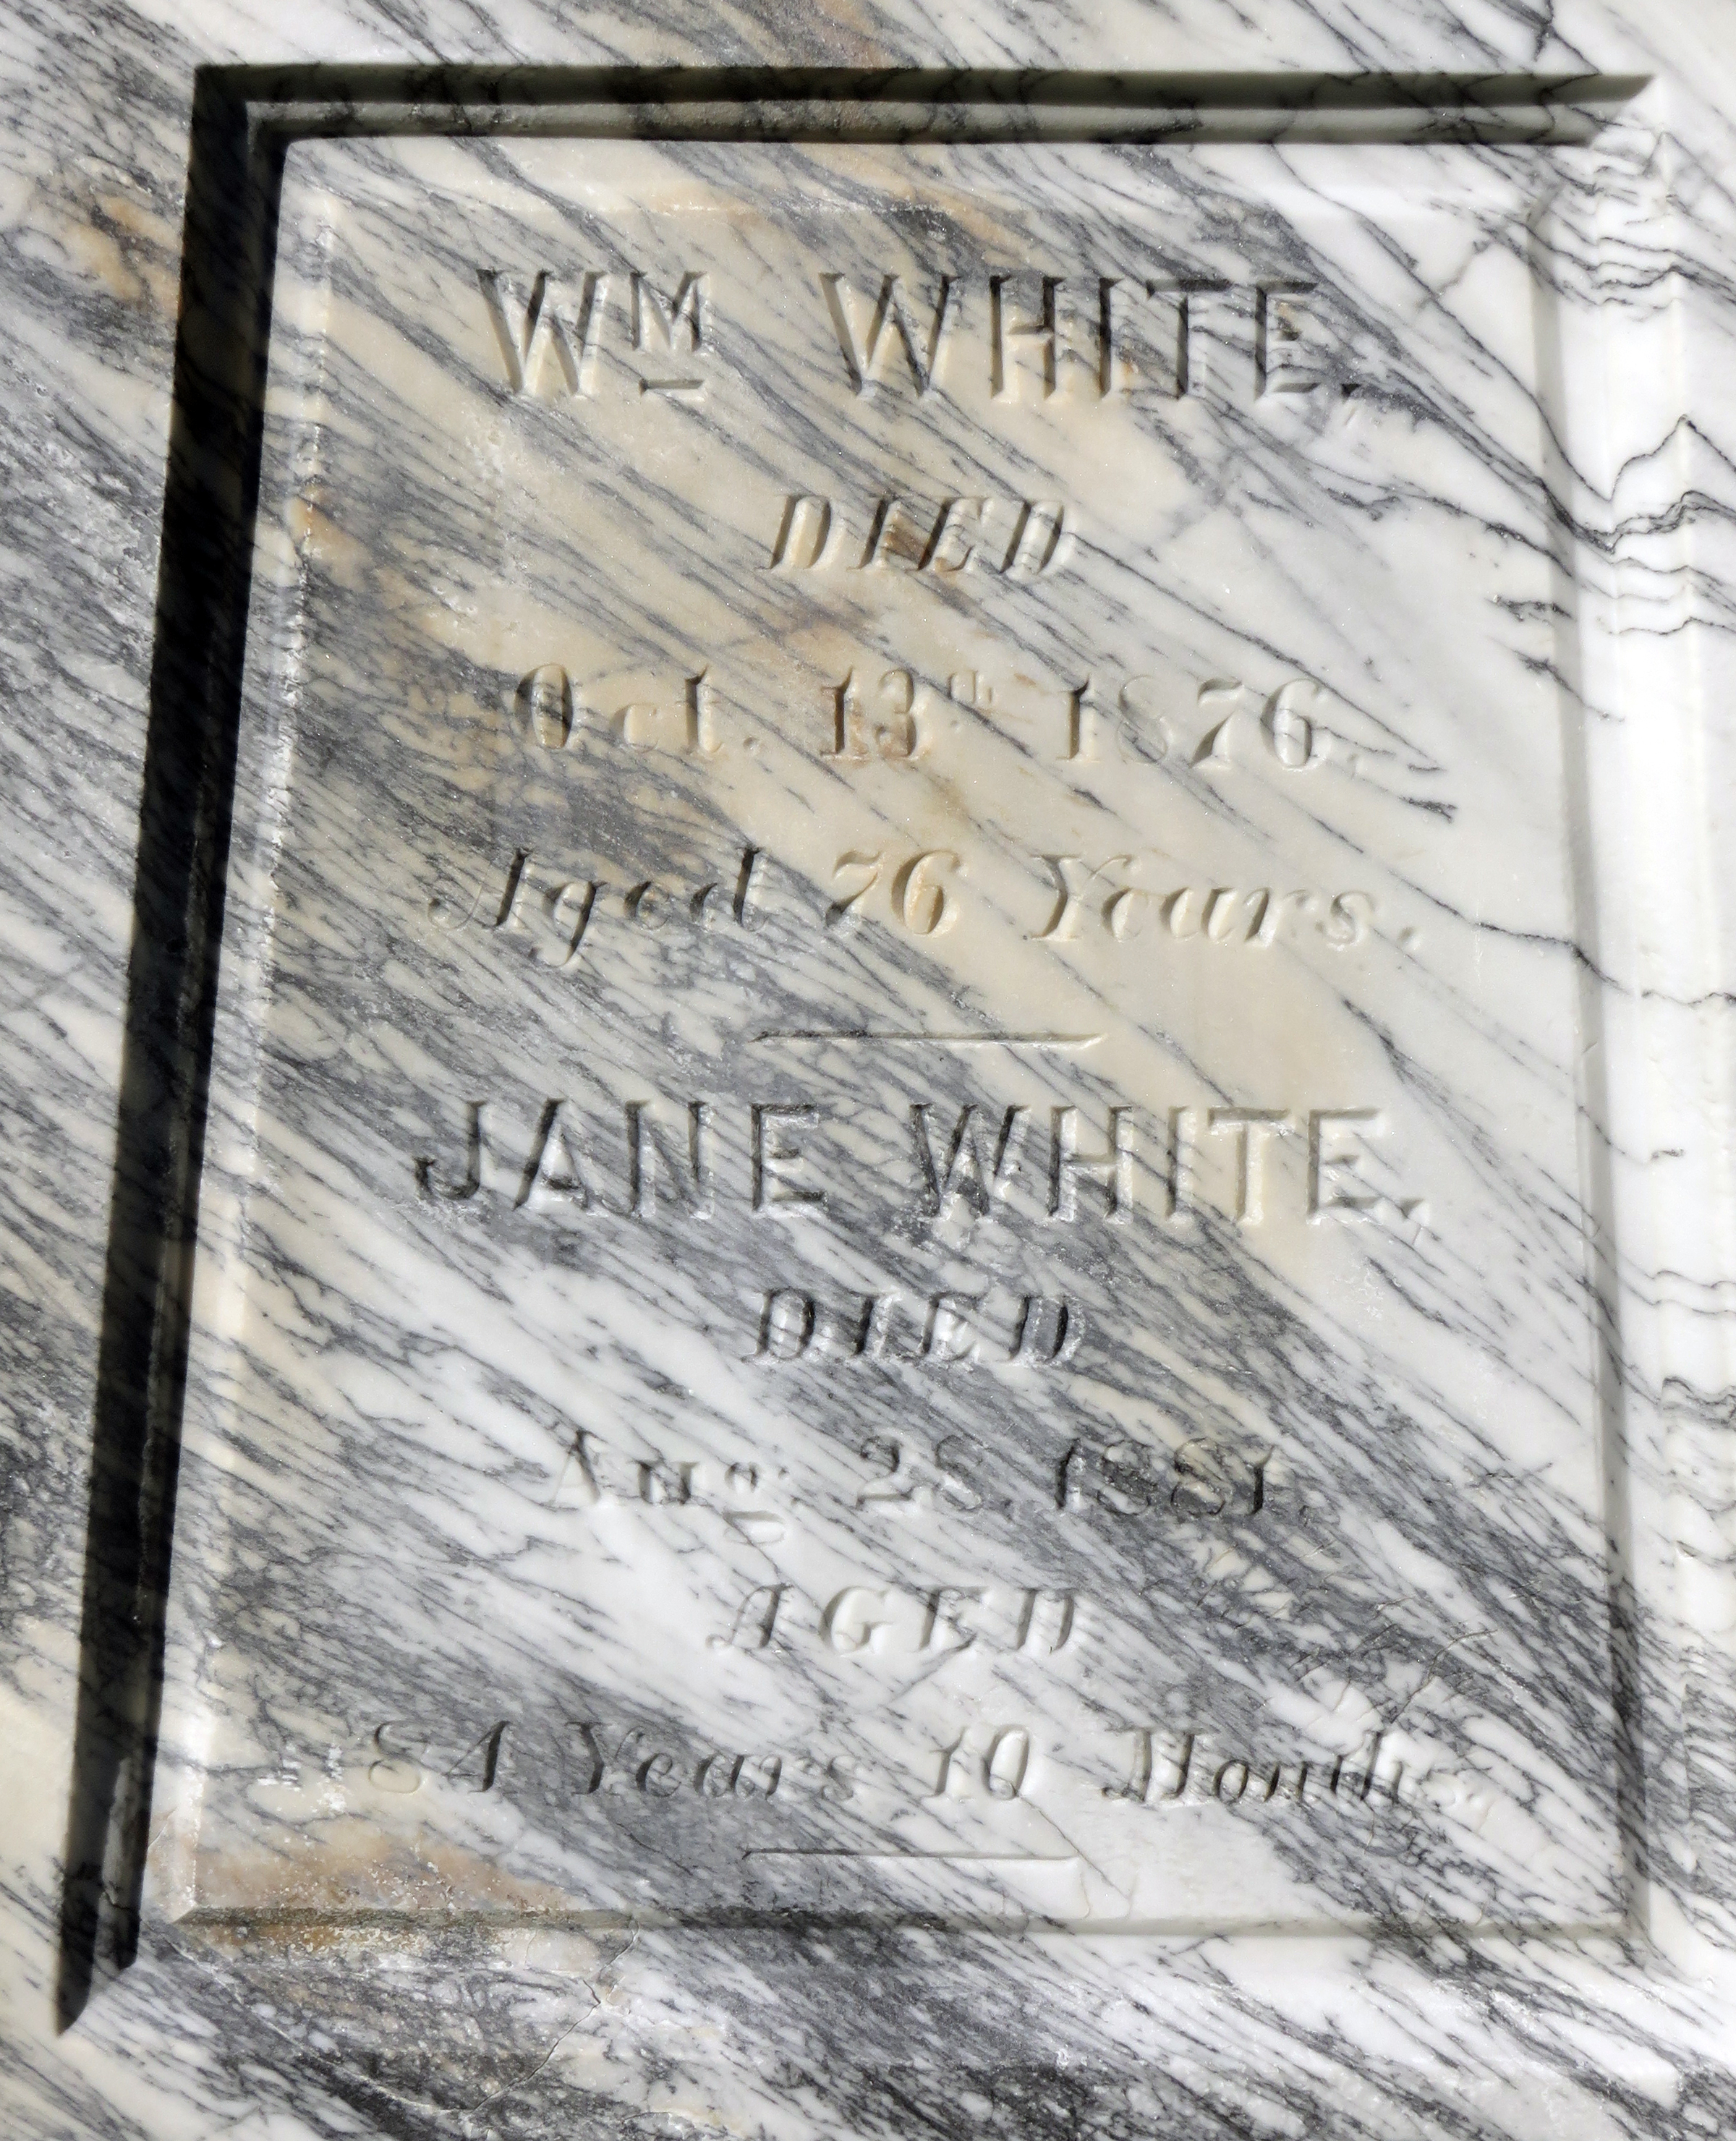 WM WHITE.
DIED
Oct. 13th 1876.
Aged 76 Years.
JANE WHITE.
DIED
Aug. 28. 1881.
AGED
84 Years 10 Months.